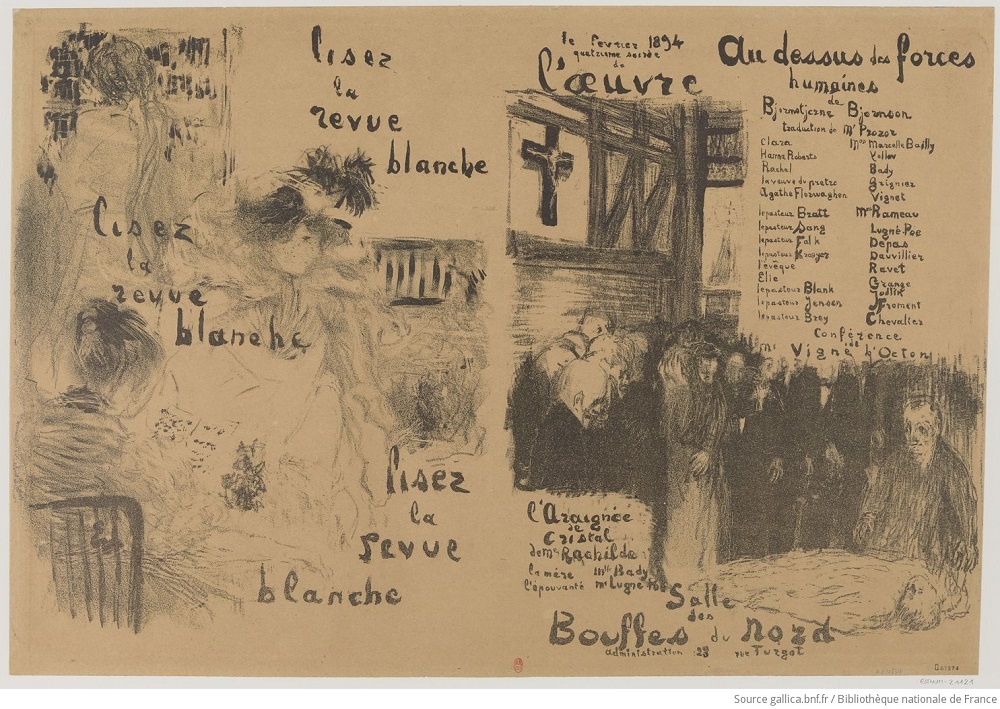 lisez
la
revue
blanche
lisez
la
revue
blanche
lisez
la
revue
blanche
le fevrier 1894
quatrieme soirée
de
l'œuvre
Au dessus des forces
humaines
de
Bjornstjerne Bjornson
traduction de Mr Prozor
Clara Mmes Marcelle Bailly
Hanna Roberts
Rachel Bady
la veuve du pretre Grignier
Agatha Florwaghen Vignet
le pasteur Bratt Mrs Rameau
le pasteur Sang Lugné-Poe
le pasteur Falk Depas
le pasteur Kroejer Dauvillier
l'évêque Ravet
Elie Grange
le pasteur Blank
le pasteur Jensen Froment
le pasteur Brey Chevalier
Conférence
de
Mr Vigné d'Octon
l'Araignée
de
Cristal
de Me Rachilde
la mère Mlle Bady
l'épouvanté Mr Lugné Poe
Salle
des
Bouffes du Nord
administration : 23 rue Turgot
Source gallica.bnf.fr / Bibliothèque nationale de France